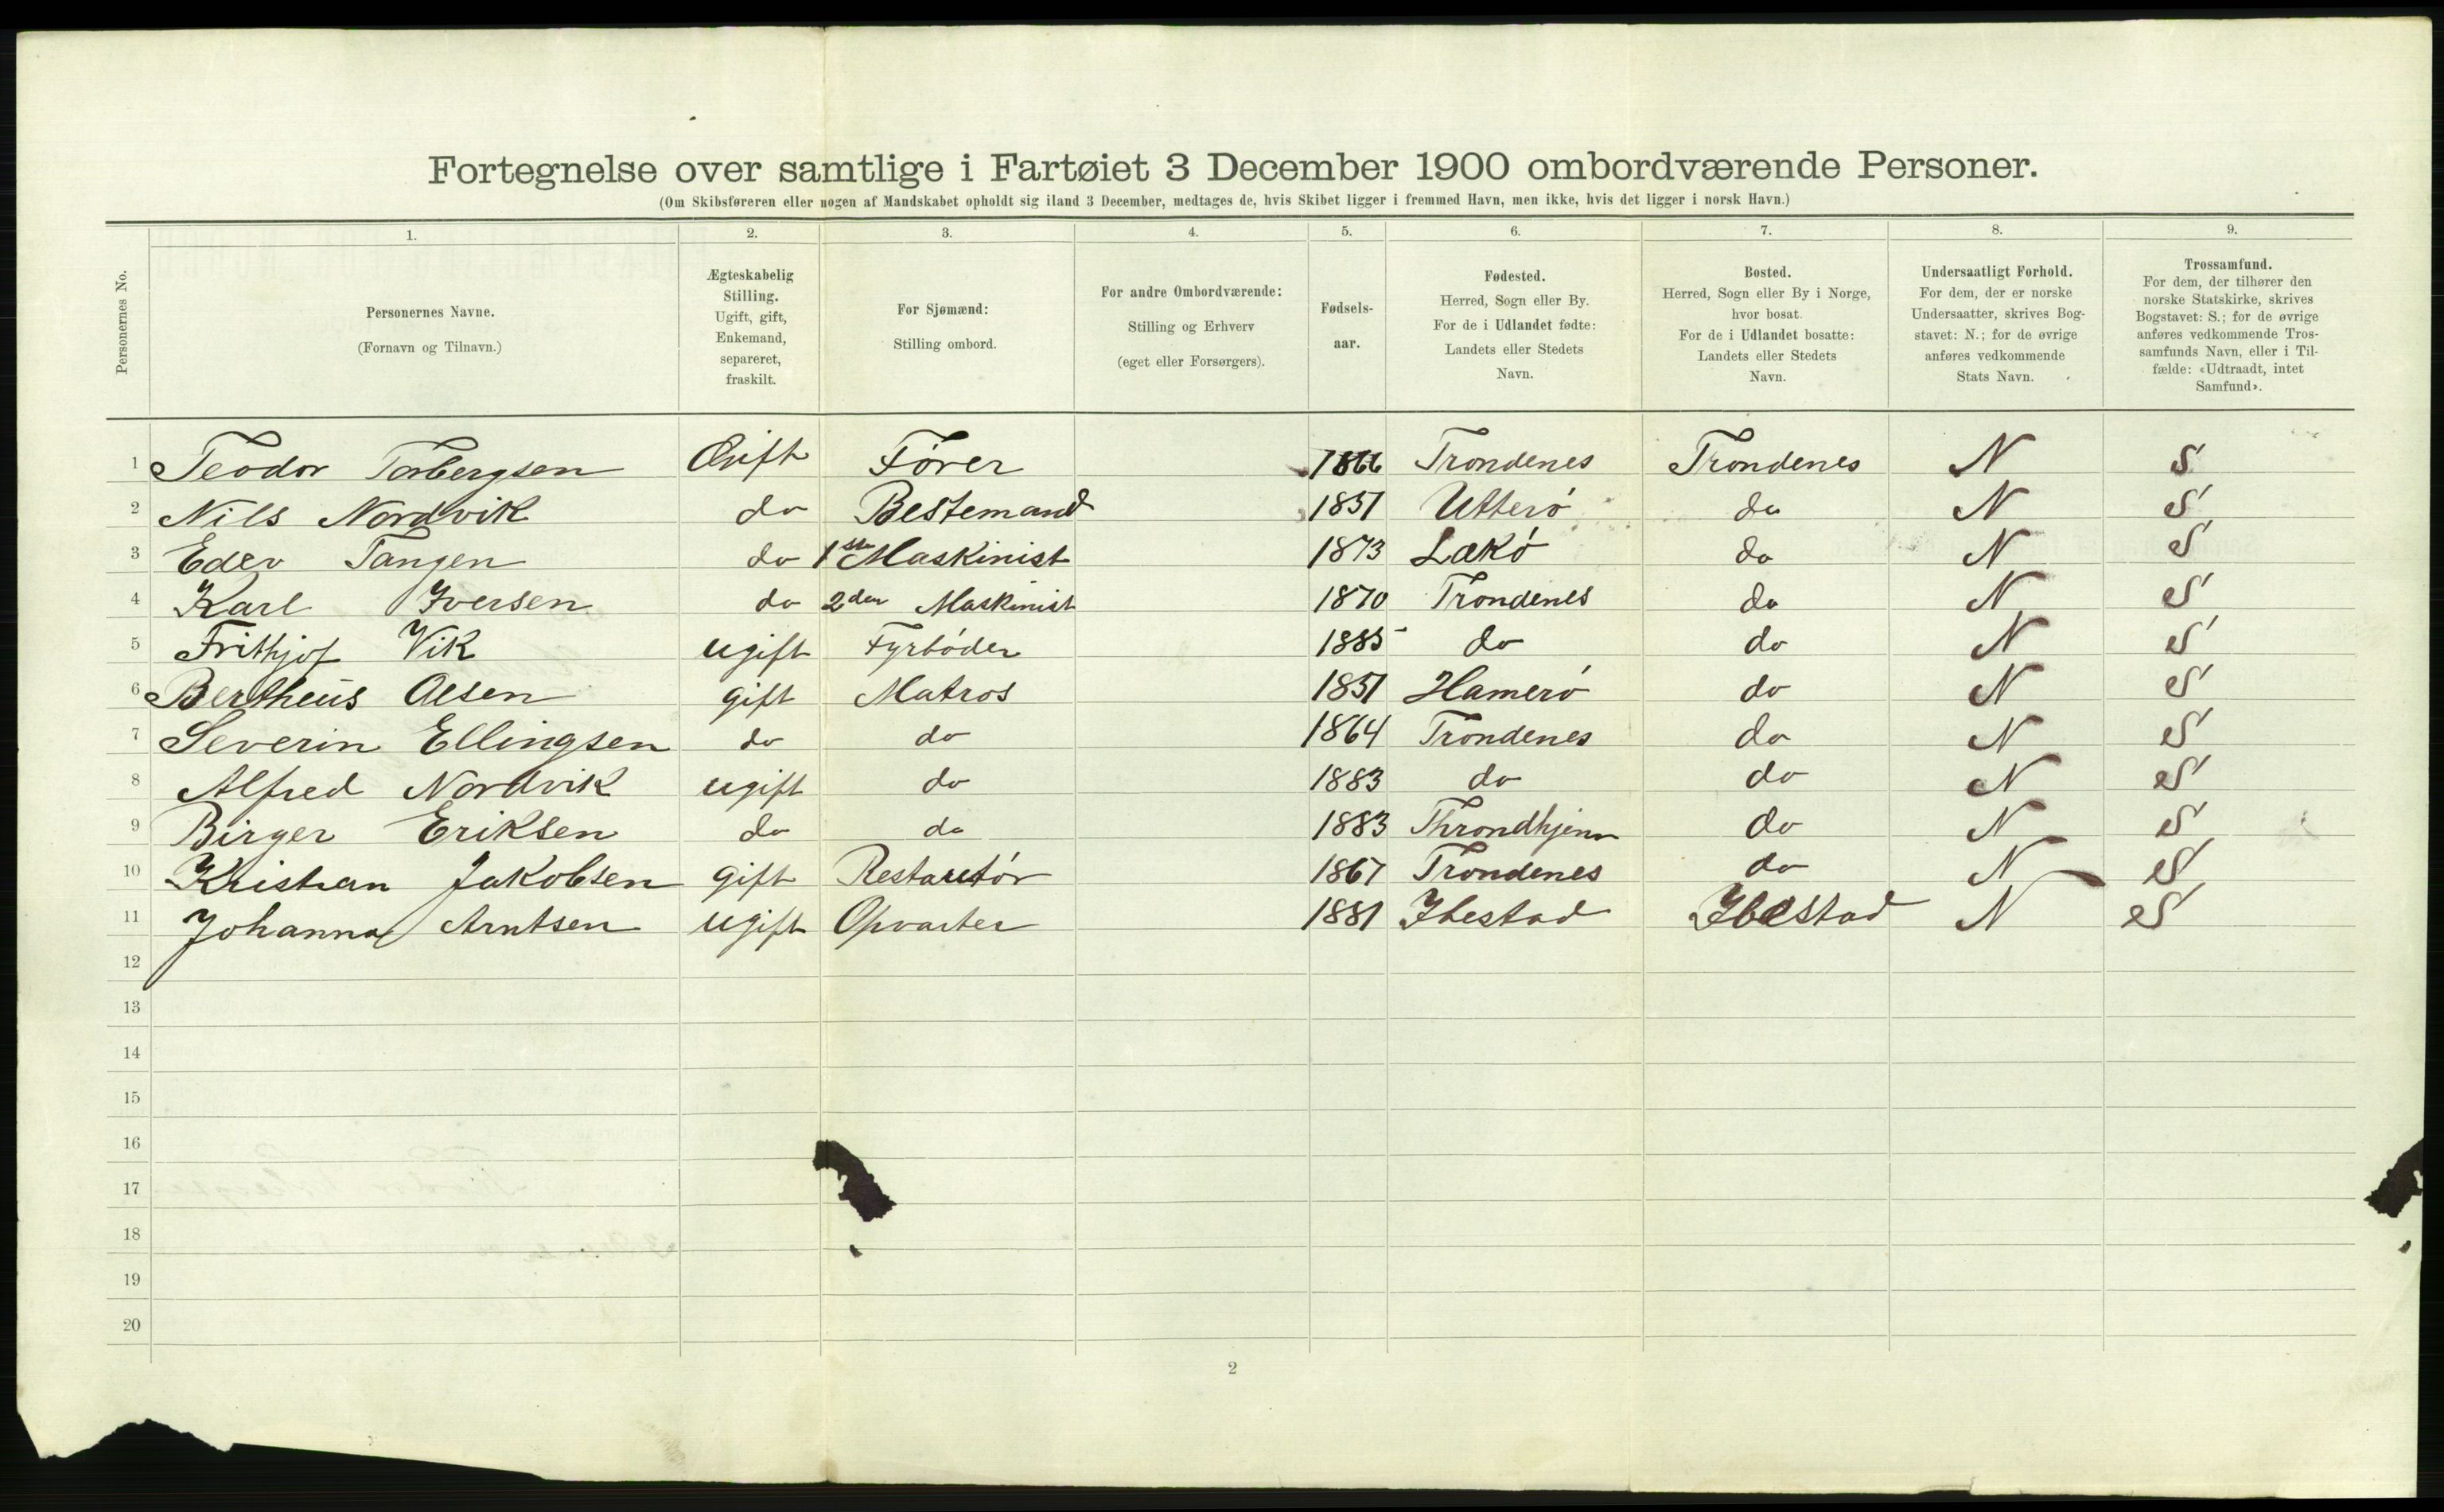 Fortegnelse over samtlige i Fartøiet 3 December 1900 ombordværende Personer.
(Om Skibsføreren eller nogen af Mandskabet opholdt sig iland 3 December, medtages de, hvis Skibet ligger i fremmed Havn, men ikke, hvis det ligger i norsk Havn.)
1. 2. 3. 4. 5. 6. 7. 8. 9.
Personernes No.
Personernes Navne.
(Fornavn og Tilnavn.)
Ægteskabelig
Stilling.
Ugift, gift,
Enkemand,
separeret,
fraskilt.
For Sjømænd:
Stilling ombord.
For andre Ombordværende:
Stilling og Erhverv
(eget eller Forsørgers).
Fødsels-
aar.
Fødested.
Herred, Sogn eller By.
For de i Udlandet fødte:
Landets eller Stedets
Navn.
Bosted.
Herred, Sogn eller By i Norge,
hvor bosat.
For de i Udlandet bosatte:
Landets eller Stedets
Navn.
Undersaatligt Forhold.
For dem, der er norske
Undersaatter, skrives Bog-
stavet: N.; for de øvrige
anføres vedkommende
Stats Navn.
Trossamfund.
For dem, der tilhører den
norske Statskirke, skrives
Bogstavet: S.; for de øvrige
anføres vedkommende Tros-
samfunds Navn, eller i Til-
fælde: «Udtraadt, intet
Samfund».
1 Teodor Torbergsen Gift Fører 1866 Trondenes Trondenes N S
2 Nils Nordvik do Bestemand 1851 Utterö do N S
3 Edev Tangen do 1ste Maskinist 1873 Lækö do N S
4 Karl Iversen do 2den Maskinist 1870 Trondenes do N S
5 Frithjof Vik ugift Fyrböder 1885 do do N S
6 Bertheus Olsen gift Matros 1851 Hamerö do N S
7 Severin Ellingsen do do 1864 Trondenes do N S
8 Alfred Nordvik ugift do 1883 do do N S
9 Birger Eriksen do do 1883 Throndhjem do N S
10 Kristian Jakobsen gift Restauetör 1867 Trondenes do N S
11 Johanna Arntsen ugift Opvarter 1881 Ibestad Ibestad N S
12
13
14
15
16
17
18
19
20
2